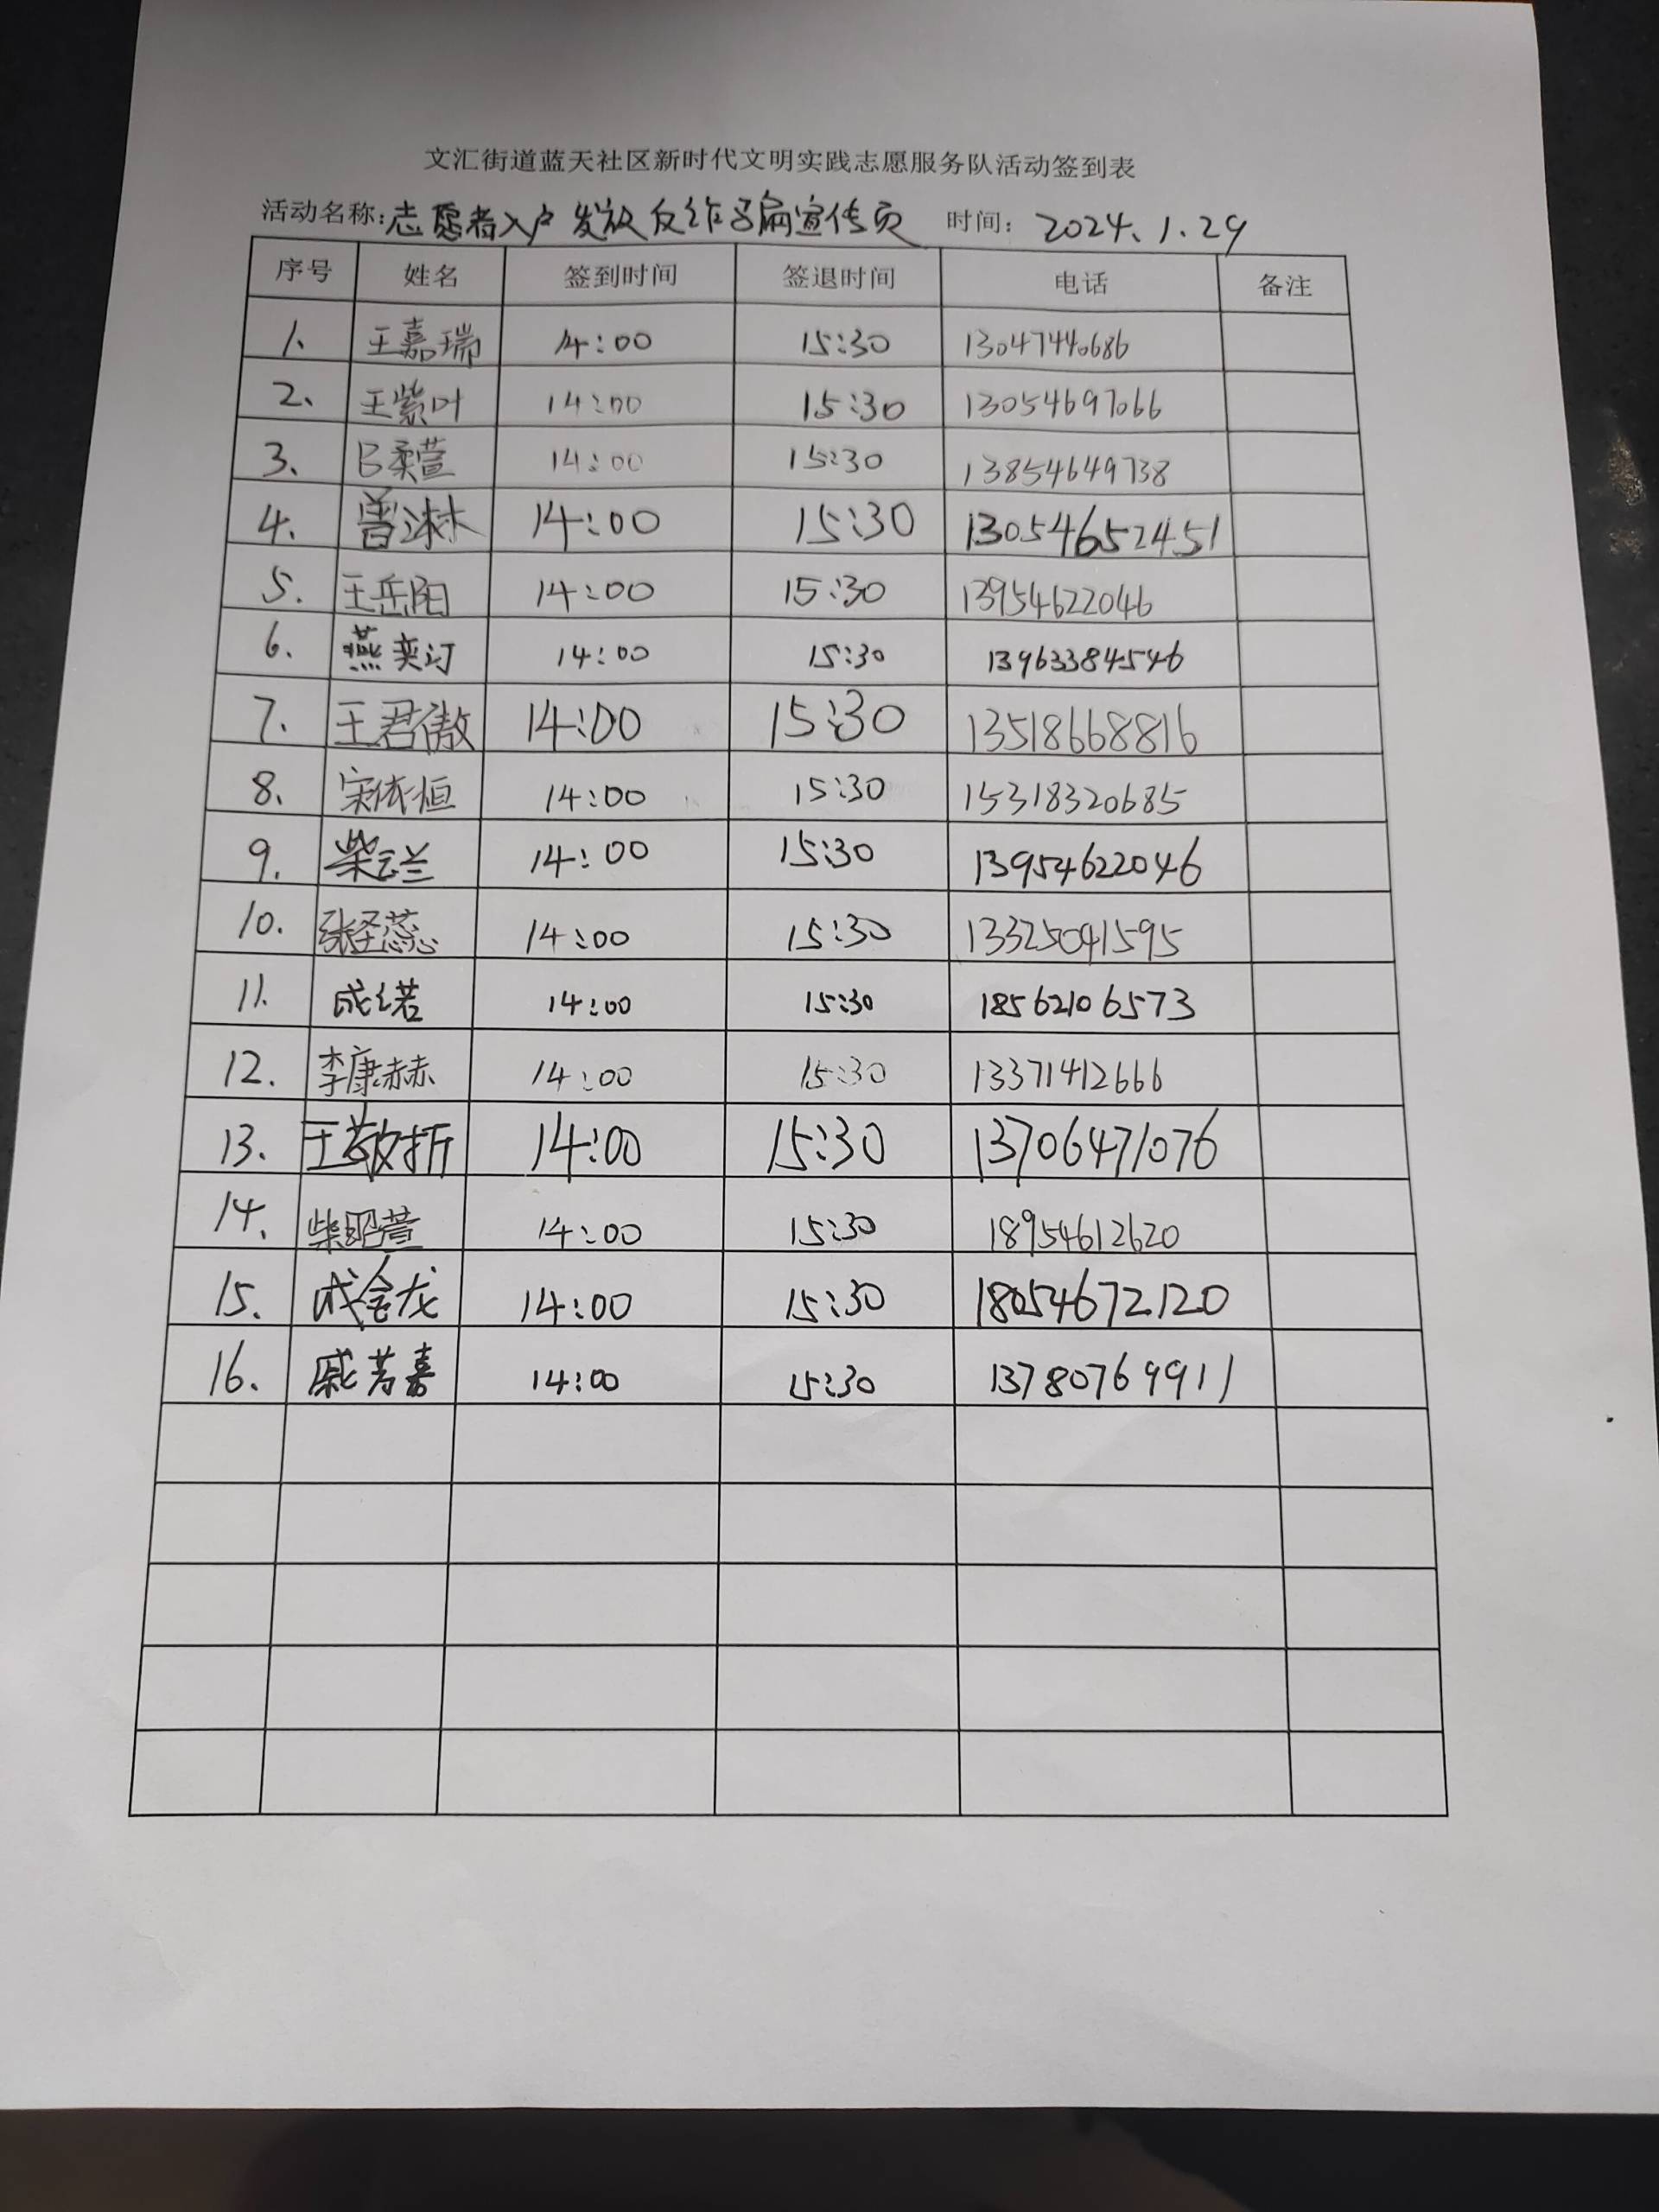 文汇街道蓝天社区新时代文明实践志愿服务队活动签到表
活动名称:志愿者入户发放反诈骗宣传页 时间: 2024.1.29
序号 姓名 签到时间 签退时间 电话 备注
1. 王嘉瑞 14:00 15:30 13047440686
2. 王紫叶 14:00 15:30 13054697066
3. 吕柔萱 14:00 15:30 13854649738
4. 曾淋 14:00 15:30 13054652451
5. 王岳阳 14:00 15:30 13954622046
6. 燕奕汀 14:00 15:30 13963384546
7. 王君傲 14:00 15:30 13518668816
8. 宋依恒 14:00 15:30 15318320685
9. 柴云兰 14:00 15:30 13954622046
10. 张圣蕊 14:00 15:30 13325041595
11. 成诺 14:00 15:30 18562106573
12. 李康赫 14:00 15:30 13371412666
13. 王敬折 14:00 15:30 13706471076
14. 柴昭萱 14:00 15:30 18954612620
15. 成金龙 14:00 15:30 18054672120
16. 戚芳嘉 14:00 15:30 13780769911